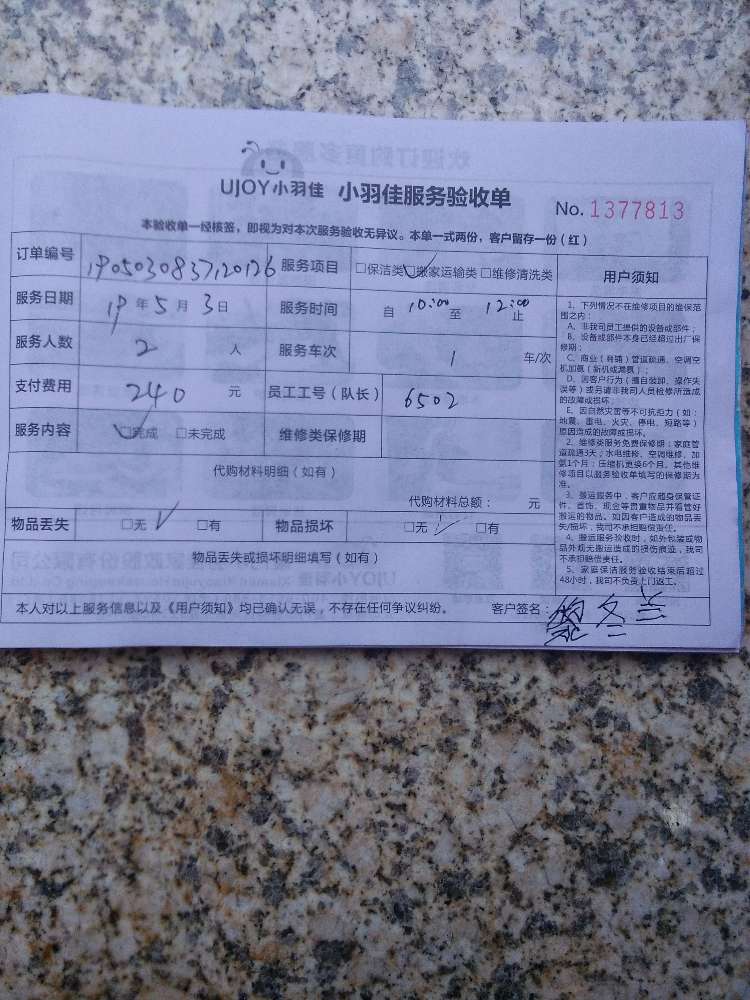 UJOY小羽佳 小羽佳服务验收单 No. 1377813
本验收单一经核签，即视为对本次服务验收无异议。本单一式两份，客户留存一份（红）
订单编号 190503083720126 服务项目 □保洁类 ☑搬家运输类 □维修清洗类
服务日期 19 年 5 月 3 日 服务时间 自 10:00 至 12:00 止
服务人数 2 人 服务车次 1 车/次
支付费用 240 元 员工工号（队长） 6502
服务内容 ☑完成 □未完成 维修类保修期
代购材料明细（如有）
代购材料总额： 元
物品丢失 □无 √ □有 物品损坏 □无 √ □有
物品丢失或损坏明细填写（如有）
本人对以上服务信息以及《用户须知》均已确认无误，不存在任何争议纠纷。 客户签名：黎冬兰
用户须知
1、下列情况不在维修项目的维保范
围之内：
A、非我司员工提供的设备或部件；
B、设备或部件本身已经超过出厂保
修期；
C、商业（商铺）管道疏通、空调空
机加氨（新机或漏氨）；
D、因客户行为（擅自装卸、操作失
误等）或另请非我司人员检修所造成
的故障或损坏；
E、因自然灾害等不可抗拒力（如：
地震、雷电、火灾、停电、短路等）
原因造成的故障或损坏。
2、维修类服务免费保修期：家庭管
道疏通3天；水电维修、空调维修、加
氨1个月；压缩机更换6个月。其他维
修项目以服务验收单填写的保修期为
准。
3、搬运服务中，客户应随身保管证
件、首饰、现金等贵重物品并看管好
搬运的物品。如因客户造成的物品丢
失/损坏，我司不承担赔偿责任。
4、搬运服务验收时，如外包装或物
品外观无搬运造成的损伤痕迹，我司
不承担赔偿责任。
5、家庭保洁服务验收结束后超过
48小时，我司不负责上门返工。